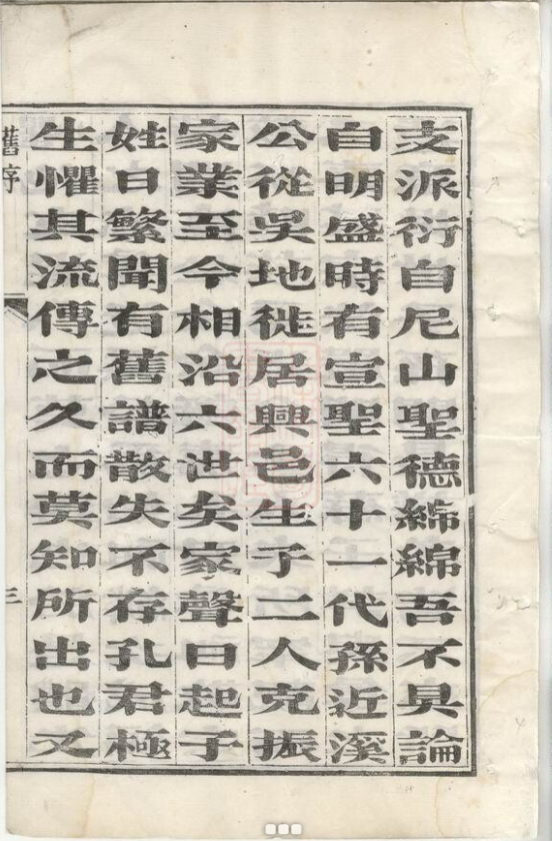 支派衍自尼山聖德綿綿吾不具論
自明盛時有宣聖六十一代孫近溪
公從吳地徙居興邑生子二人克振
家業至今相沿六世矣家聲日起子
姓日繁聞有舊譜散失不存孔君極
生懼其流傳之久而莫知所出也又
舊序
三